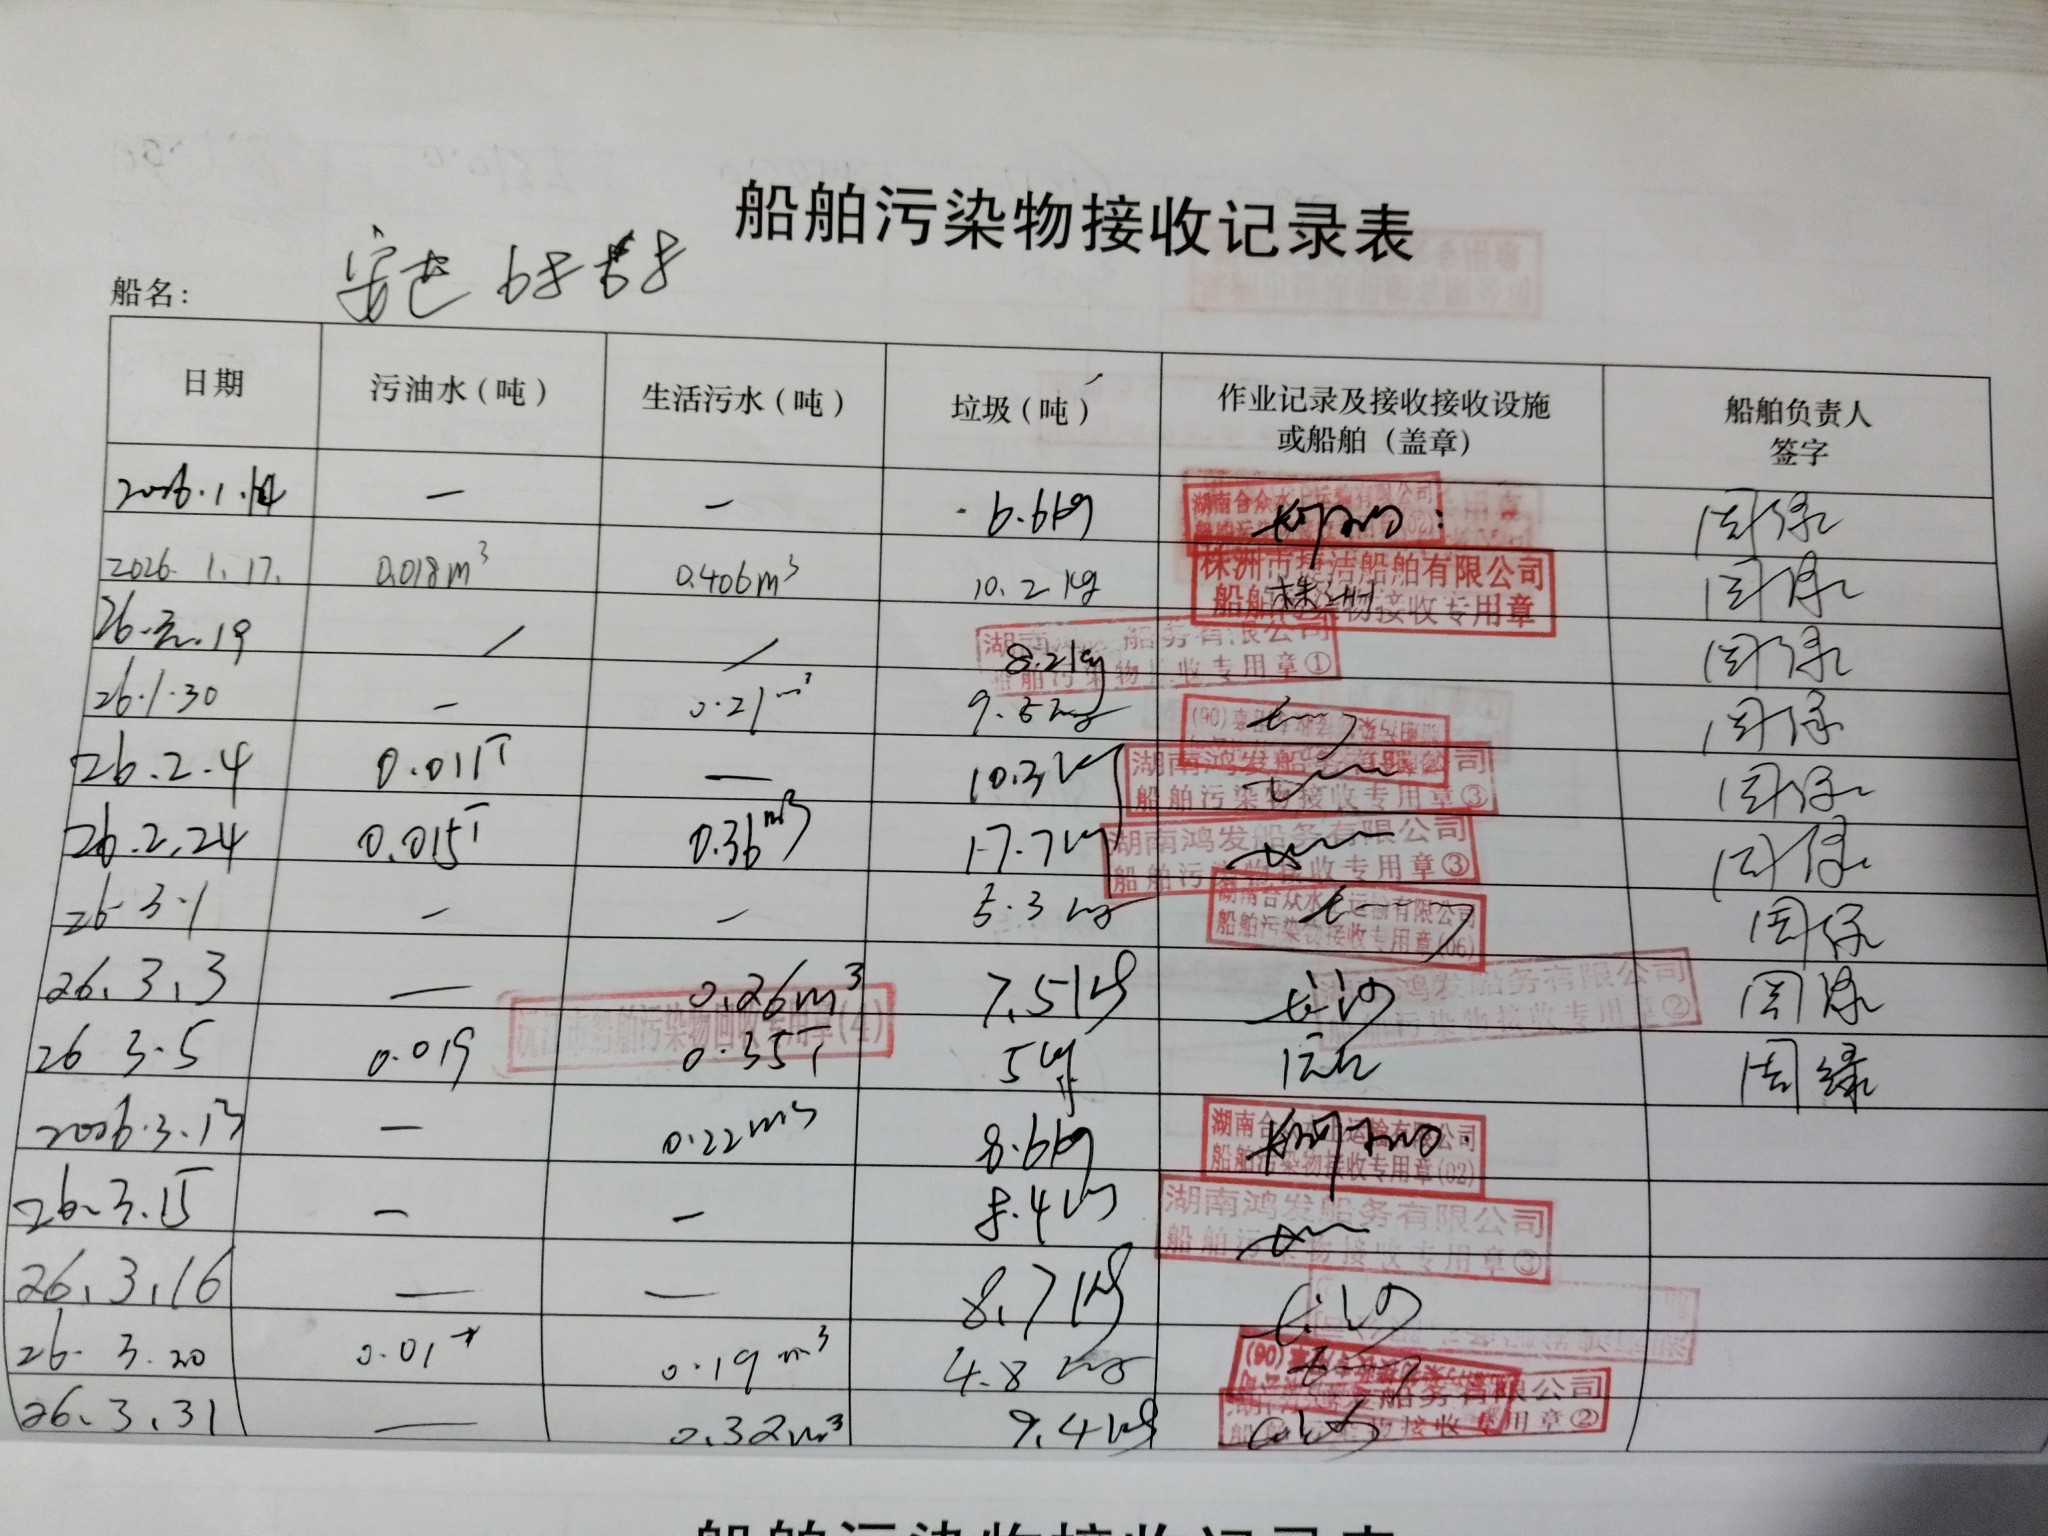 船舶污染物接收记录表
船名：
日期 污油水（吨） 生活污水（吨） 垃圾（吨） 作业记录及接收接收设施或船舶（盖章） 船舶负责人签字
2026.1.14 — — 6.6kg 湖南合众水上运输有限公司 周绿
2026.1.17. 0.018m³ 0.406m³ 10.2kg 株洲市 洁船舶有限公司 船舶 物接收专用章 株洲 周绿
26. .19 / / 8.2kg 湖南 船务有限公司 船舶污染物接收专用章① 周绿
26.1.30 — 0.21m³ 9. kg 周绿
26.2.4 0.011T — 10.3kg 湖南鸿发船务有限公司 船舶污染物接收专用章③ 周绿
26.2.24 0.015T 0.36m³ 17.7kg 湖南鸿发船务有限公司 船舶污染物接收专用章③ 周绿
26.3.1 — — 5.3kg 湖南合众水上运输有限公司 船舶污染物接收专用章(06) 周绿
26.3.3 — 0.26m³ 7.5kg 长沙 鸿发船务有限公司 船舶污染物接收专用章② 周绿
26 3.5 0.019 0.35T 5kg 沅江市船舶污染物回收专用章(4) 沅江 周绿
2026.3.13 — 0.22m³ 8.6kg 湖南合 水上运输有限公司 船舶污染物接收专用章(02)
26.3.15 — — 8.4kg 湖南鸿发船务有限公司 船舶污染物接收专用章③
26.3.16 — — 8.7kg 长沙
26.3.20 0.01T 0.19m³ 4.8kg
26.3.31 — 0.32m³ 9.4kg 船务有限公司 接收专用章② 长沙
船舶污染物接收记录表